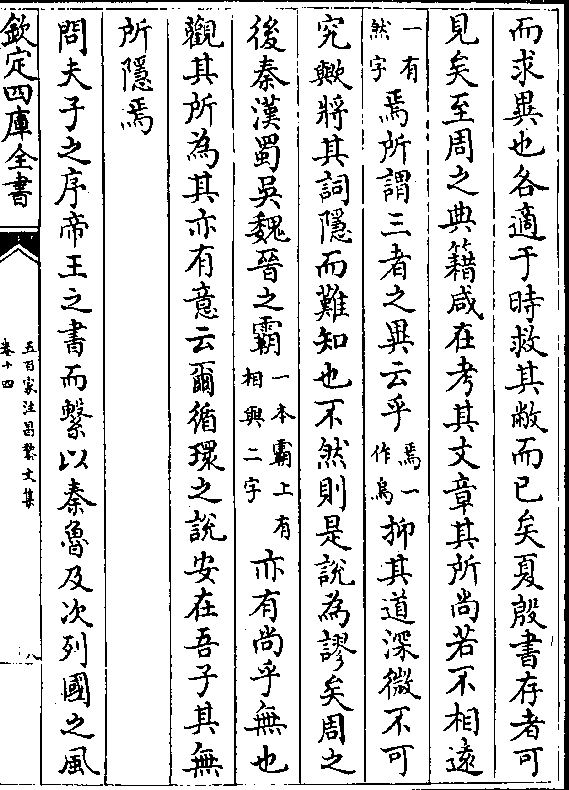 而求異也各適于時救其敝而已矣夏殷書存者可
見矣至周之典籍咸在考其文章其所尚若不相逺
一有
然字
焉所謂三者之異云乎
焉一
作烏
抑其道深微不可
究歟將其詞隱而難知也不然則是說為謬矣周之
後秦漢蜀吳魏晉之霸
一本霸上有
相興二字
亦有尚乎無也
觀其所為其亦有意云爾循環之說安在吾子其無
所隱焉
問夫子之序帝王之書而繫以秦魯及次列國之風
欽定四庫全書
五百家注昌黎文集
卷十四
八